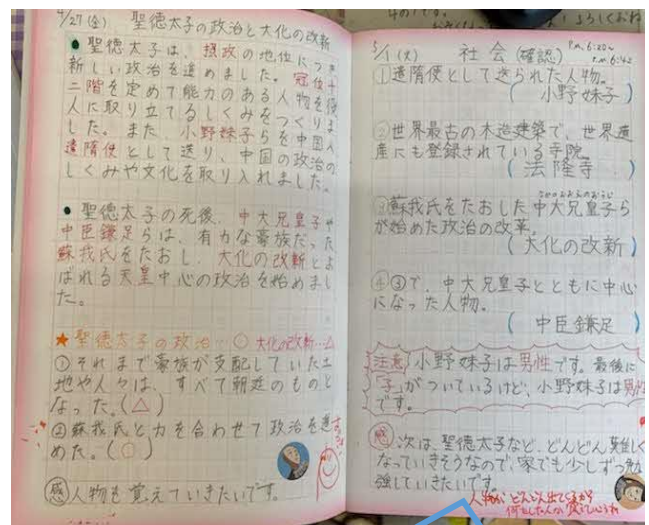 4/27(金) 聖徳太子の政治と大化の改新
● 聖徳太子は、摂政の地位につき
新しい政治を進めました。冠位十
二階を定めて能力のある人物を役
人に取り立てるしくみをつくりま
した。また、小野妹子らを中国へ
遣隋使として送り、中国の政治の
しくみや文化を取り入れました。
● 聖徳太子の死後、中大兄皇子や
中臣鎌足らは、有力な豪族だった
蘇我氏をたおし、大化の改新とよ
ばれる天皇中心の政治を始めまし
た。
★ 聖徳太子の政治…○ 大化の改新…△
① それまで豪族が支配していた土
地や人々は、すべて朝廷のものと
なった。(△)
② 蘇我氏と力を合わせて政治を進
めた。(○)
感 人物を覚えていきたいです。
5/1(火) 社会(確認) P.m.6:20~
P.m.6:42
① 遣隋使として送られた人物。
(小野妹子)
② 世界最古の木造建築で、世界遺
産にも登録されている寺院。
(法隆寺)
③ 蘇我氏をたおした中大兄皇子ら
なかのおおえのおうじ
が始めた政治の改革。
(大化の改新)
④ ③で、中大兄皇子とともに中心
になった人物。
(中臣鎌足)
注意 小野妹子は男性です。最後に
「子」がついているけど、小野妹子は男性
です。
感 次は、聖徳太子など、どんどん難しく
なっていきそうなので、家でも少しずつ勉
強していきたいです。
人物が どんどん出てくるから
何をした人か 覚えて